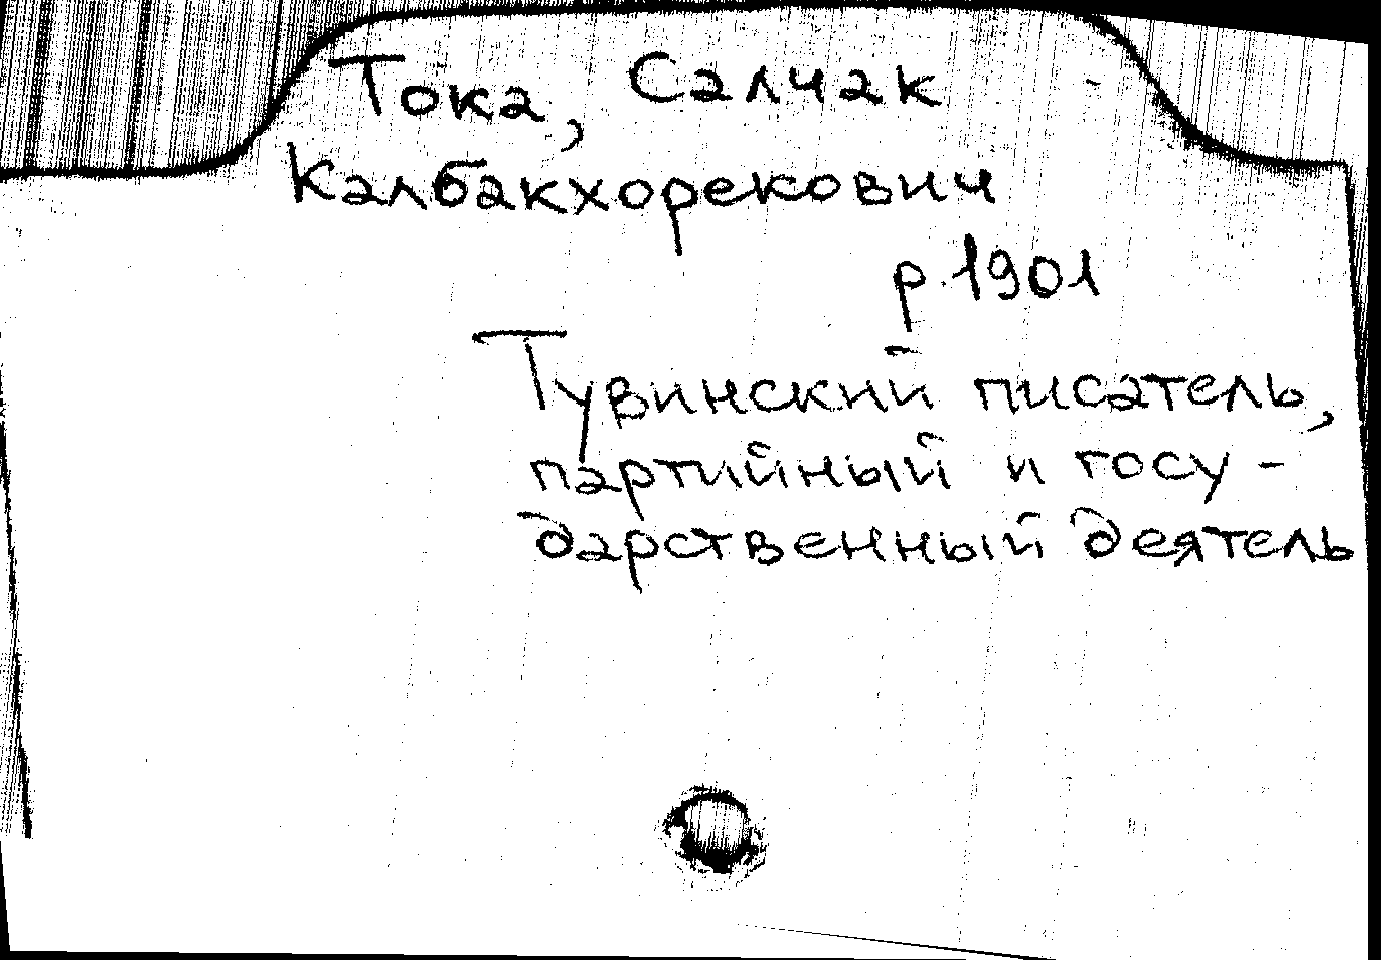 Тока, Салчак
Калбакхорекович
р. 1901
Тувинский писатель,
партийный и госу-
дарственный деятель